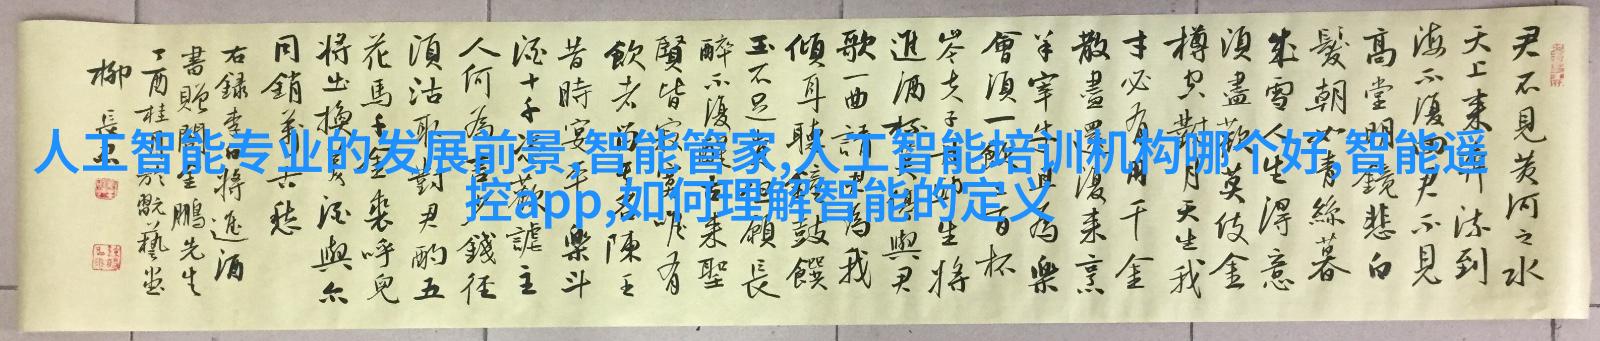 君不見黃河之水
天上来奔流到
海不復回君不見
高堂明鏡悲白
髮朝如青絲暮
成雪人生得意
須盡歡莫使金
樽空對月天生我
才必有用千金
散盡還復来烹
羊宰牛且為樂
會須一飲三百杯
岑夫子丹丘生將
進酒杯莫停與君
歌一曲請君為我
傾耳聽鐘鼓饌
玉不足貴但願長
醉不復醒古来聖
賢皆寂寞唯有
飲者留其名陳王
昔時宴平樂斗
酒十千恣歡謔主
人何為言少錢徑
須沽取對君酌五
花馬千金裘呼兒
將出換美酒與尔
同銷萬古愁
右録李白將進酒
書贈閻金鵬先生
丁酉桂月於翫藝堂
柳長忠
人工智能专业的发展前景,智能管家,人工智能培训机构哪个好,智能遥
控app,如何理解智能的定义